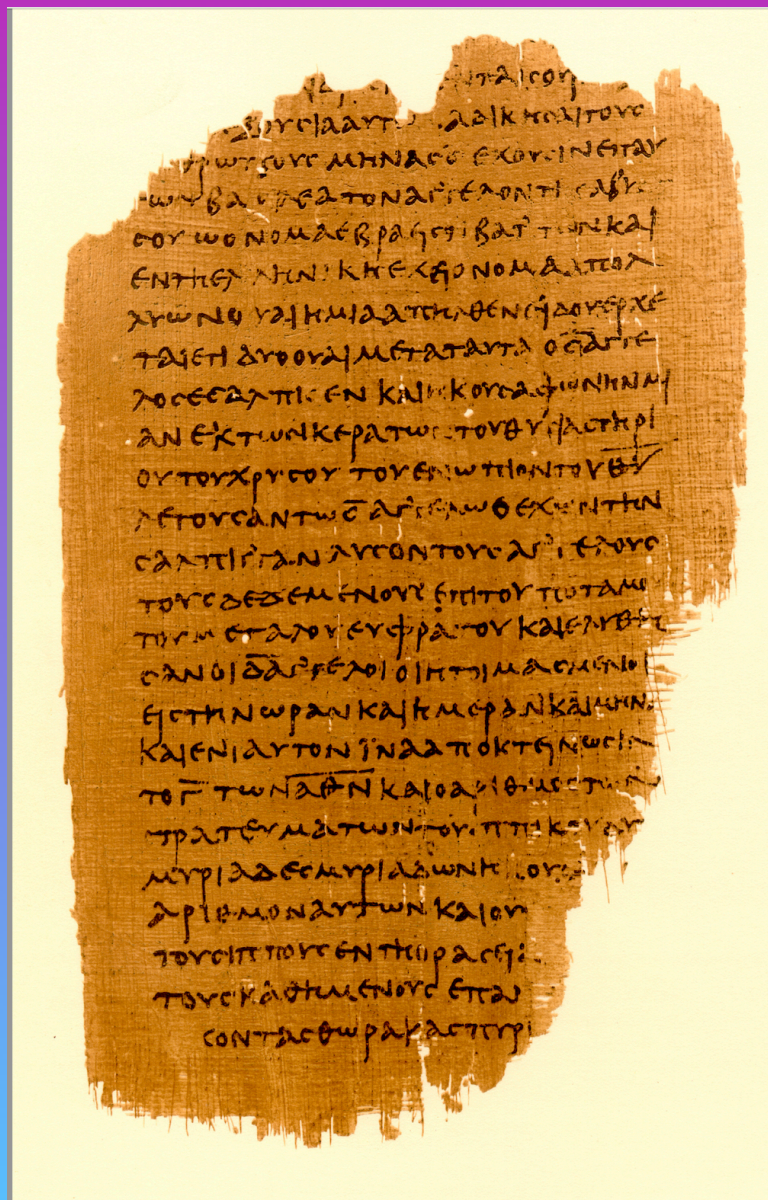 ΝΤΑΙϹΟΥ
ΞΟΥϹΙΑΑΥΤΩ ΑΔΙΚΗϹΑΙΤΟΥϹ
ΘΡΩΠΟΥϹ ΜΗΝΑϹ Ε̅ ΕΧΟΥϹΙΝΕΠΑΥ
ΤΩΝΒΑϹΙΛΕΑΤΟΝΑΓΓΕΛΟΝΤΗϹΑΒΥϹ
ϹΟΥΩΟΝΟΜΑΕΒΡΑΕΙϹΤΙΒΑΤΤΩΝΚΑΙ
ΕΝΤΗΕΛΛΗΝΙΚΗΕΧΕΙΟΝΟΜΑΑΠΟΛ
ΛΥΩΝΟΥΑΙΗΜΙΑΑΠΗΛΘΕΝΕΙΔΟΥΕΡΧΕ
ΤΑΙΕΤΙΔΥΟΟΥΑΙΜΕΤΑΤΑΥΤΑ ΟϚ̅ΑΓΓΕ
ΛΟϹΕϹΑΛΠΙϹΕΝ ΚΑΙΗΚΟΥϹΑΦΩΝΗΝΜΙ
ΑΝΕΚΤΩΝΚΕΡΑΤΩΝΤΟΥΘΥϹΙΑϹΤΗΡΙ
ΟΥΤΟΥΧΡΥϹΟΥ ΤΟΥΕΝΩΠΙΟΝΤΟΥΘ̅Υ̅
ΛΕΓΟΥϹΑΝΤΩϚ̅ ΑΓΓΕΛΩΟΕΧΩΝΤΗΝ
ϹΑΛΠΙΓΓΑΝ ΛΥϹΟΝΤΟΥϹΑΓΓΕΛΟΥϹ
ΤΟΥϹΔΕΔΕΜΕΝΟΥϹ ΕΠΙΤΟΥΠΟΤΑΜΩ
ΤΟΥΜΕΓΑΛΟΥΕΥΦΡΑΤΟΥ ΚΑΙΕΛΥΘΗ
ϹΑΝΟΙΔ̅ΑΓΓΕΛΟΙΟΙΗΤΟΙΜΑϹΜΕΝΟΙ
ΕΙϹΤΗΝΩΡΑΝΚΑΙΗΜΕΡΑΝΚΑΙΜΗΝΑ
ΚΑΙΕΝΙΑΥΤΟΝΪΝΑΑΠΟΚΤΕΙΝΩϹΙΝ
ΤΟΓ̅ ΤΩΝΑ̅Θ̅Ν̅ ΚΑΙΟΑΡΙΘΜΟϹΤΩΝ
ΤΡΑΤΕΥΜΑΤΩΝΤΟΥΙΠΠΙΚΟΥΔΥ
ΜΥΡΙΑΔΕϹΜΥΡΙΑΔΩΝΗΚΟΥϹΑ
ΑΡΙΘΜΟΝΑΥΤΩΝΚΑΙΟΥ
ΤΟΥϹΙΠΠΟΥϹΕΝΤΗΟΡΑϹΕΙ
ΤΟΥϹΚΑΘΗΜΕΝΟΥϹ ΕΠΑΥ
ϹΟΝΤΑϹΘΩΡΑΚΑϹΠΥΡΙ